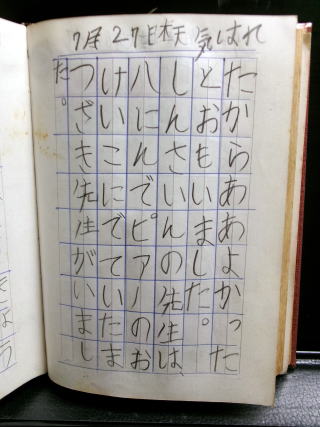 7月27日木天気はれ
たからああよかった
とおもいました。
しんさいんの先生は、
八にんでピアノのお
けいこにでていたま
つざき先生がいまし
た。